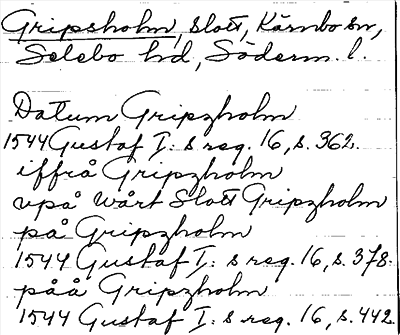 Gripsholm, slott, Kärnbo sn,
Selebo hd, Söderm. l.
Datum Gripzholm
1544 Gustaf I:s reg. 16, s. 362.
iffrå Gripzholm
vpå wårt Slott Gripzholm
på Gripzholm
1544 Gustaf I:s reg. 16, s. 378.
påå Gripzholm
1544 Gustaf I:s reg. 16, s. 442.